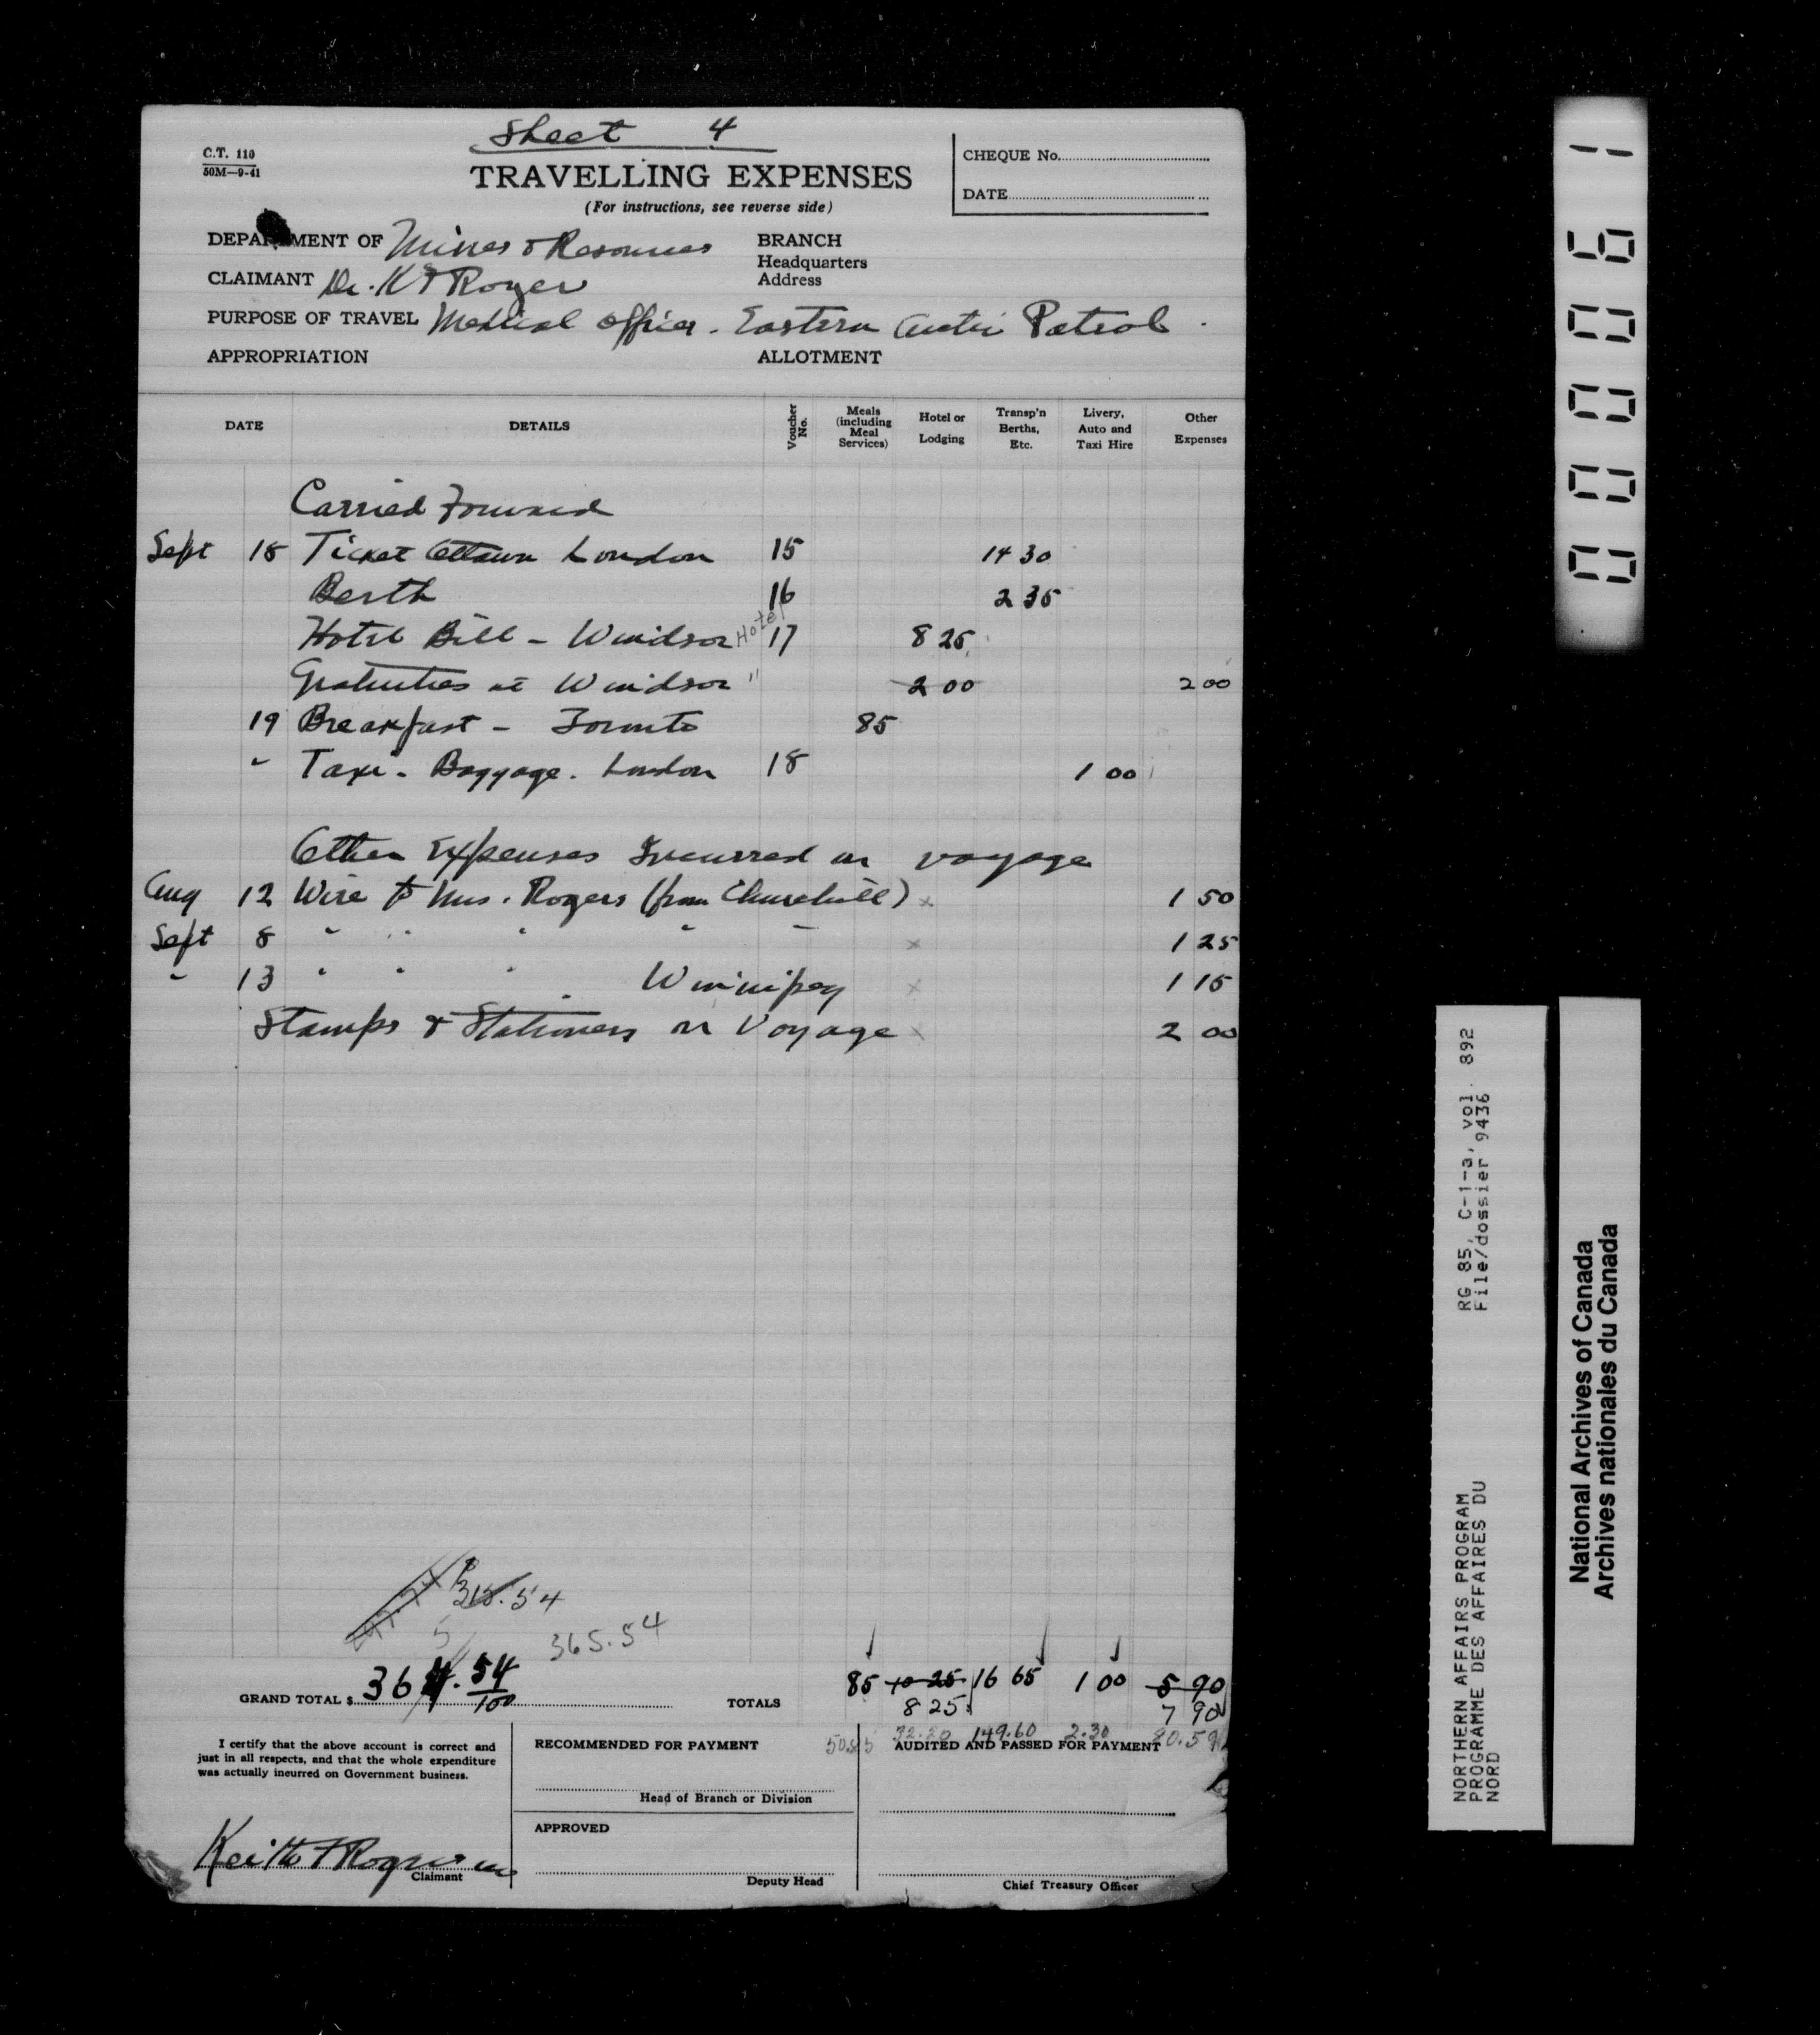 Sheet 4
C.T. 110
50M—9-41
TRAVELLING EXPENSES
(For instructions, see reverse side)
CHEQUE No.
DATE
DEPARTMENT OF Mines & Resources
BRANCH
Headquarters
Address
CLAIMANT Dr. K F Roger
PURPOSE OF TRAVEL Medical Officer. Eastern Arctic Patrol.
APPROPRIATION ALLOTMENT
DATE DETAILS Voucher No. Meals (including Meal Services) Hotel or Lodging Transp'n Berths, Etc. Livery, Auto and Taxi Hire Other Expenses
Carried Forward
Sept 18 Ticket Ottawa London 15 14 30
Berth 16 2 35
Hotel Bill - Windsor Hotel 17 8 25
Gratuities at Windsor " 2 00 2 00
19 Breakfast - Toronto 85
" Taxi - Baggage. London 18 1 00
Other Expenses Incurred on voyage
Aug 12 Wire to Mrs. Rogers (from Churchill) x 1 50
Sept 8 " " " " " x 1 25
" 13 " " " Winnipeg x 1 15
Stamps & Stationery on Voyage x 2 00
365.54
GRAND TOTAL $ 364.54/100
TOTALS 85 10 25 16 65 1 00 5 90
8 25 7 90
149.60 2.30
I certify that the above account is correct and
just in all respects, and that the whole expenditure
was actually incurred on Government business.
Keith F Rogers
Claimant
RECOMMENDED FOR PAYMENT
Head of Branch or Division
APPROVED
Deputy Head
AUDITED AND PASSED FOR PAYMENT
Chief Treasury Officer
000061
RG 85, C-1-a, vol. 892
File/dossier 9436
NORTHERN AFFAIRS PROGRAM
PROGRAMME DES AFFAIRES DU
NORD
National Archives of Canada
Archives nationales du Canada